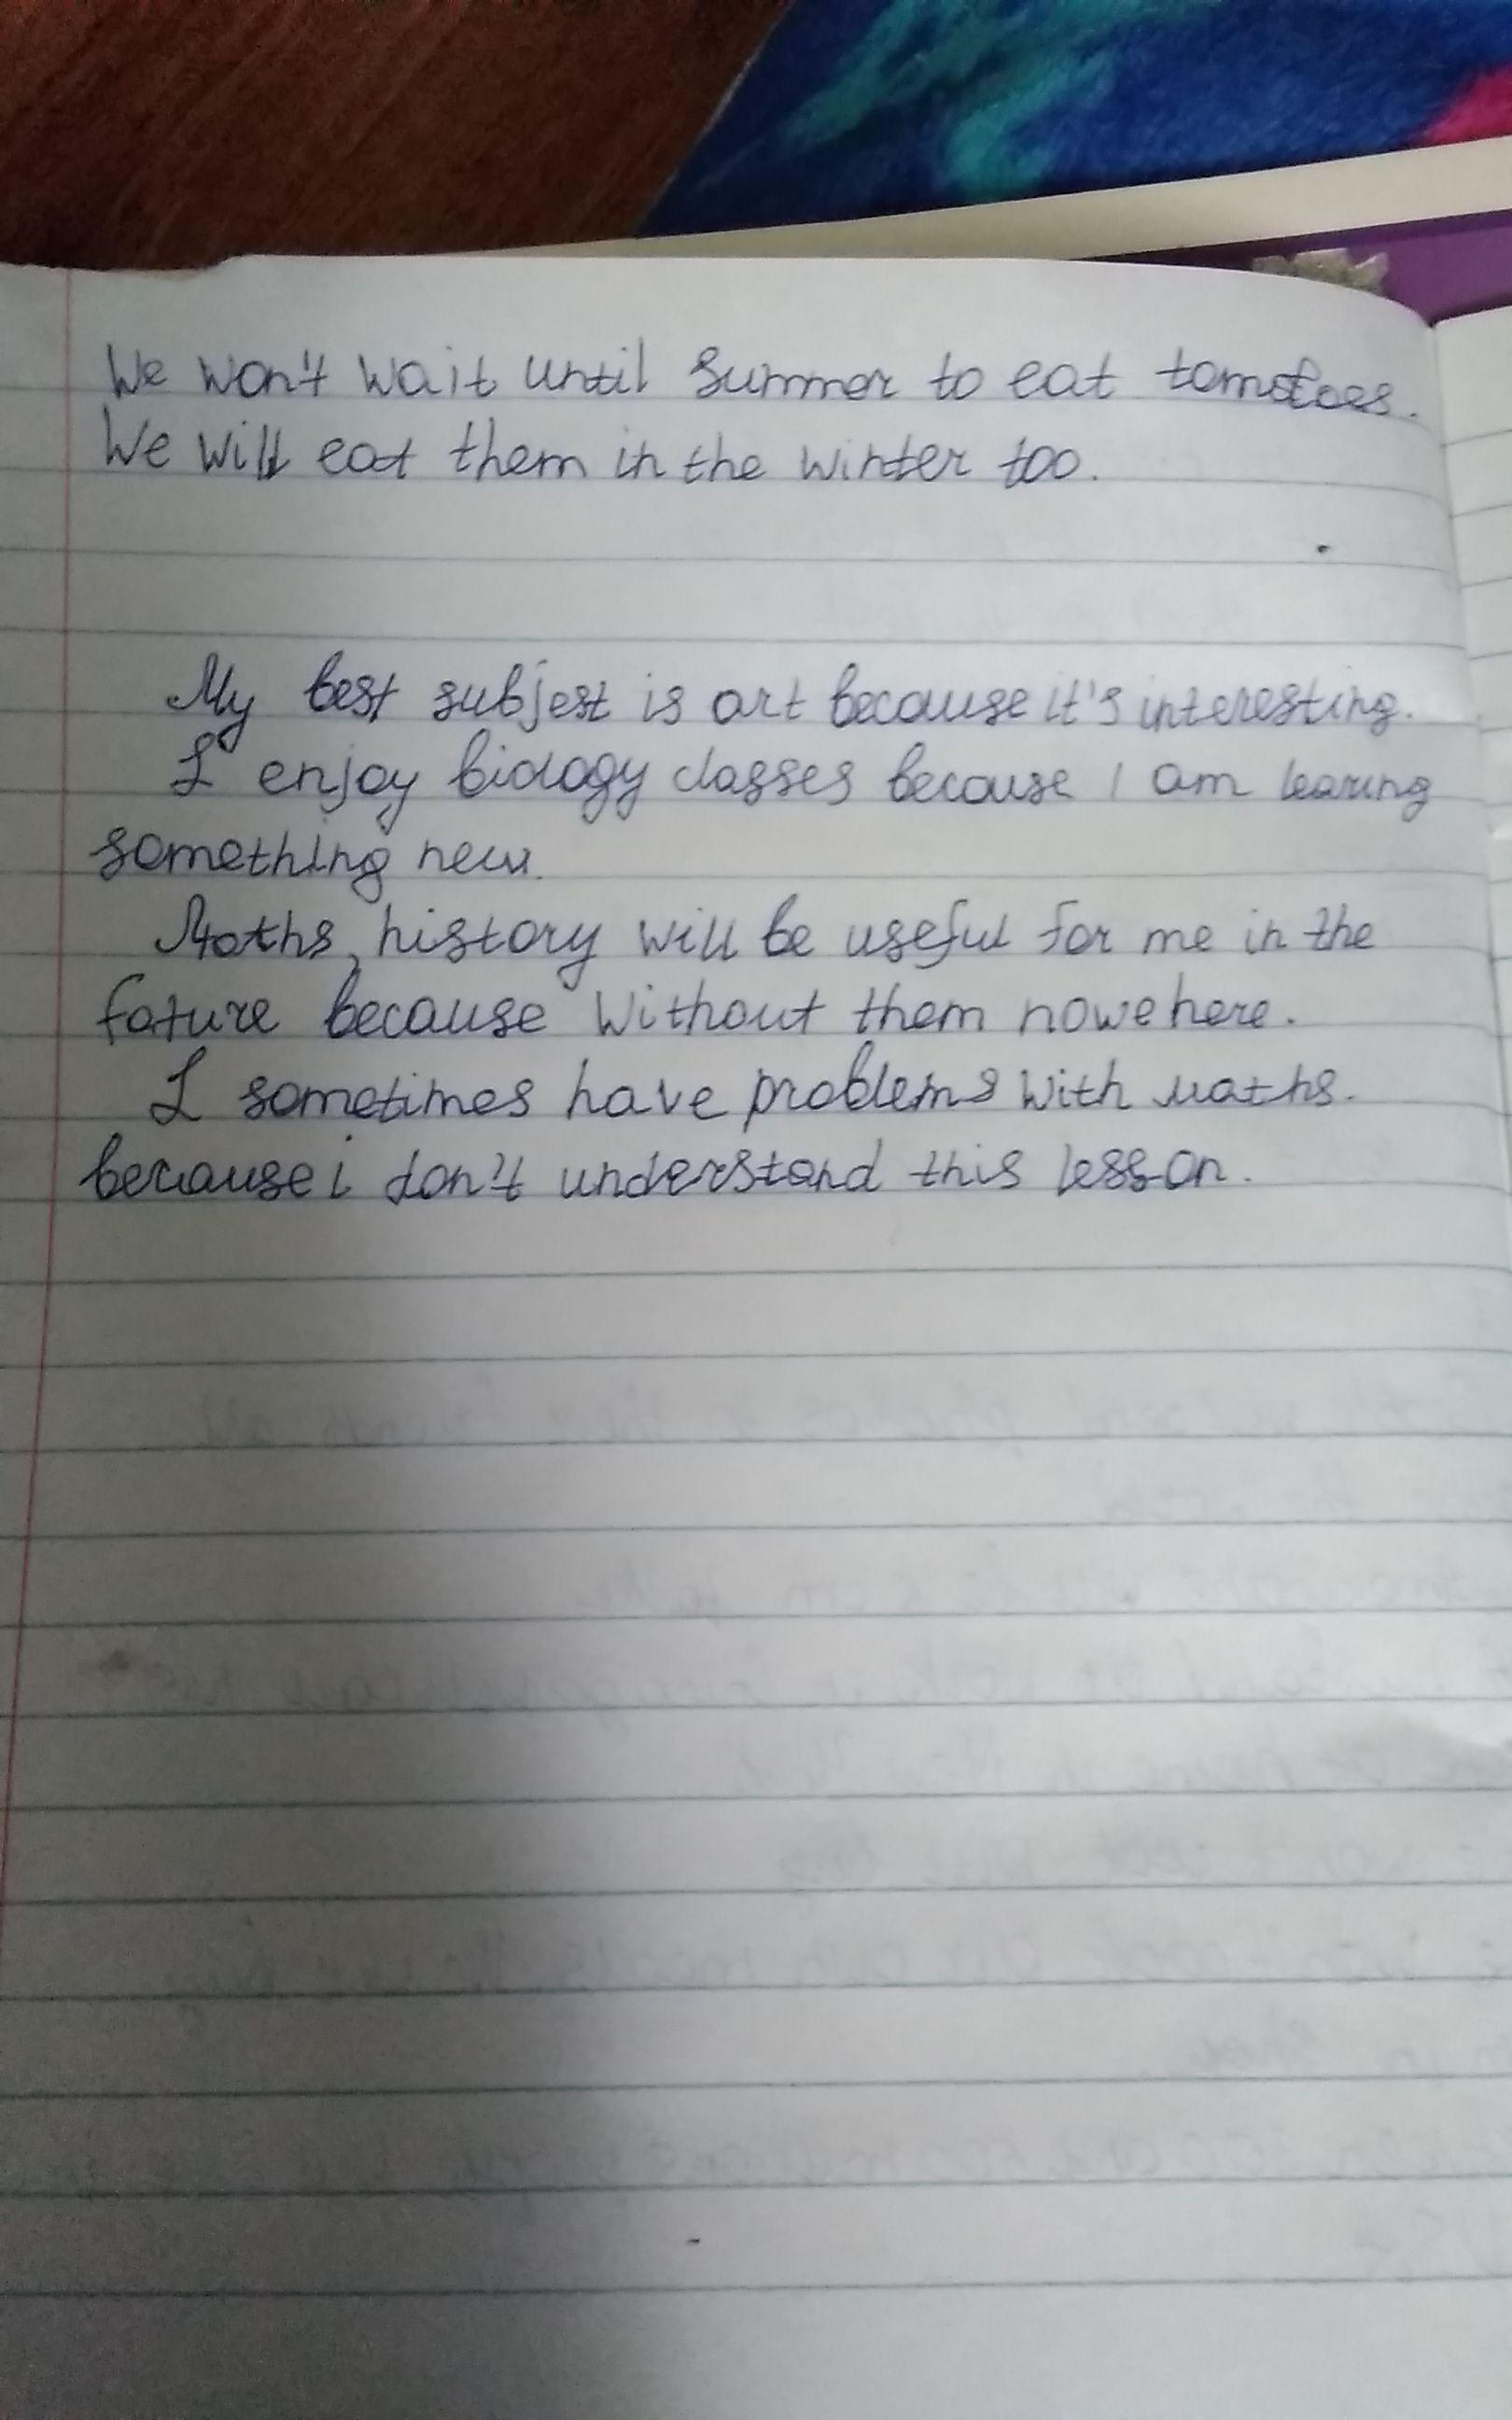 We won't wait until summer to eat tomatoes.
We will eat them in the winter too.
My best subjest is art because it's interesting.
I enjoy biology classes because I am learing
something new.
Maths, history will be useful for me in the
foture because without them nowehere.
I sometimes have problems with maths.
because i don't understand this lesson.